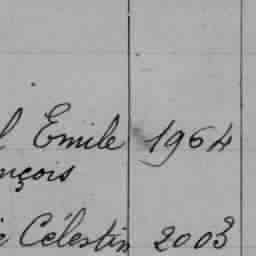 Emile 1964
nçois
Célestin 2003